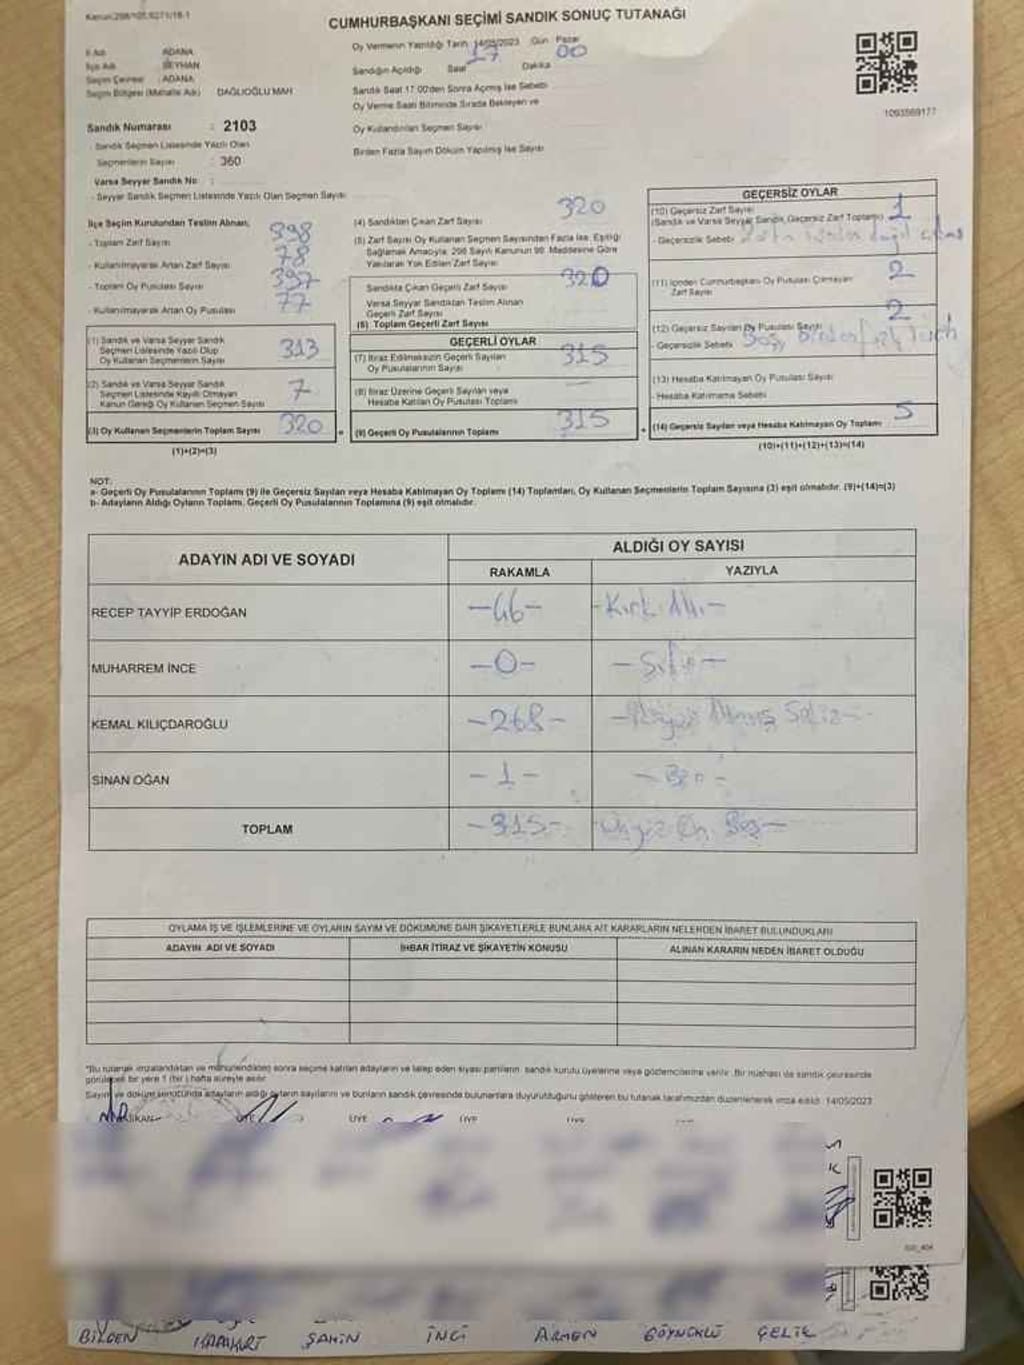 CUMHURBAŞKANI SEÇİMİ SANDIK SONUÇ TUTANAĞI
İl Adı ADANA
İlçe Adı SEYHAN
Seçim Çevresi : ADANA
Seçim Bölgesi (Mahalle Adı) DAĞLIOĞLU MAH
Sandık Numarası : 2103
- Sandık Seçmen Listesinde Yazılı Olan
Seçmenlerin Sayısı : 360
Varsa Seyyar Sandık No :
- Seyyar Sandık Seçmen Listesinde Yazılı Olan Seçmen Sayısı
Oy Vermenin Yapıldığı Tarih 14/05/2023 Gün Pazar
Sandığın Açıldığı Saat 17 Dakika 00
Sandık Saat 17:00'den Sonra Açılmış İse Sebebi
Oy Verme Saati Bitiminde Sırada Bekleyen ve
Oy Kullandırılan Seçmen Sayısı
Birden Fazla Sayım Döküm Yapılmış İse Sayısı
1093569177
İlçe Seçim Kurulundan Teslim Alınan;
- Toplam Zarf Sayısı 398
- Kullanılmayarak Artan Zarf Sayısı 78
- Toplam Oy Pusulası Sayısı 397
- Kullanılmayarak Artan Oy Pusulası 77
(1) Sandık ve Varsa Seyyar Sandık
Seçmen Listesinde Yazılı Olup
Oy Kullanan Seçmenlerin Sayısı 313
(2) Sandık ve Varsa Seyyar Sandık
Seçmen Listesinde Kayıtlı Olmayan
Kanun Gereği Oy Kullanan Seçmen Sayısı 7
(3) Oy Kullanan Seçmenlerin Toplam Sayısı 320
(1)+(2)=(3)
(4) Sandıktan Çıkan Zarf Sayısı 320
(5) Zarf Sayısı Oy Kullanan Seçmen Sayısından Fazla İse, Eşitliği
Sağlamak Amacıyla, 298 Sayılı Kanunun 98. Maddesine Göre
Yakılarak Yok Edilen Zarf Sayısı
Sandıkta Çıkan Geçerli Zarf Sayısı 320
Varsa Seyyar Sandıktan Teslim Alınan
Geçerli Zarf Sayısı
(6) Toplam Geçerli Zarf Sayısı
GEÇERLİ OYLAR
(7) İtiraz Edilmeksizin Geçerli Sayılan
Oy Pusulalarının Sayısı 315
(8) İtiraz Üzerine Geçerli Sayılan veya
Hesaba Katılan Oy Pusulası Toplamı
(9) Geçerli Oy Pusulalarının Toplamı 315
GEÇERSİZ OYLAR
(10) Geçersiz Zarf Sayısı
(Sandık ve Varsa Seyyar Sandık Geçersiz Zarf Toplamı) 1
- Geçersizlik Sebebi
(11) İçinden Cumhurbaşkanı Oy Pusulası Çıkmayan
Zarf Sayısı 2
(12) Geçersiz Sayılan Oy Pusulası Sayısı 2
- Geçersizlik Sebebi
(13) Hesaba Katılmayan Oy Pusulası Sayısı
- Hesaba Katılmama Sebebi
(14) Geçersiz Sayılan veya Hesaba Katılmayan Oy Toplamı 5
(10)+(11)+(12)+(13)=(14)
NOT:
a- Geçerli Oy Pusulalarının Toplamı (9) ile Geçersiz Sayılan veya Hesaba Katılmayan Oy Toplamı (14) Toplamları, Oy Kullanan Seçmenlerin Toplam Sayısına (3) eşit olmalıdır. (9)+(14)=(3)
b- Adayların Aldığı Oyların Toplamı, Geçerli Oy Pusulalarının Toplamına (9) eşit olmalıdır.
ADAYIN ADI VE SOYADI ALDIĞI OY SAYISI
RAKAMLA YAZIYLA
RECEP TAYYİP ERDOĞAN -46- -Kırk Altı-
MUHARREM İNCE -0- -Sıfır-
KEMAL KILIÇDAROĞLU -268- -İkiyüz Altmış Sekiz-
SİNAN OĞAN -1- -Bir-
TOPLAM -315- -Üçyüz On Beş-
OYLAMA İŞ VE İŞLEMLERİNE VE OYLARIN SAYIM VE DÖKÜMÜNE DAİR ŞİKAYETLERLE BUNLARA AİT KARARLARIN NELERDEN İBARET BULUNDUKLARI
ADAYIN ADI VE SOYADI İHBAR İTİRAZ VE ŞİKAYETİN KONUSU ALINAN KARARIN NEDEN İBARET OLDUĞU
*Bu tutanak imzalandıktan ve mühürlendikten sonra seçime katılan adayların ve talep eden siyasi partilerin, sandık kurulu üyelerine veya gözlemcilerine verilir. Bir nüshası da sandık çevresinde
görülebilir bir yere 1 (bir) hafta süreyle asılır.
Sayım ve döküm sonucunda adayların aldığı oyların sayılarını ve bunların sandık çevresinde bulunanlara duyurulduğunu gösteren bu tutanak tarafımızdan düzenlenerek imza edildi. 14/05/2023
BAŞKAN ÜYE ÜYE ÜYE ÜYE
BİLGEN KARAKURT ŞAHİN İNCİ ARMEN GÖYNÜKLÜ ÇELİK